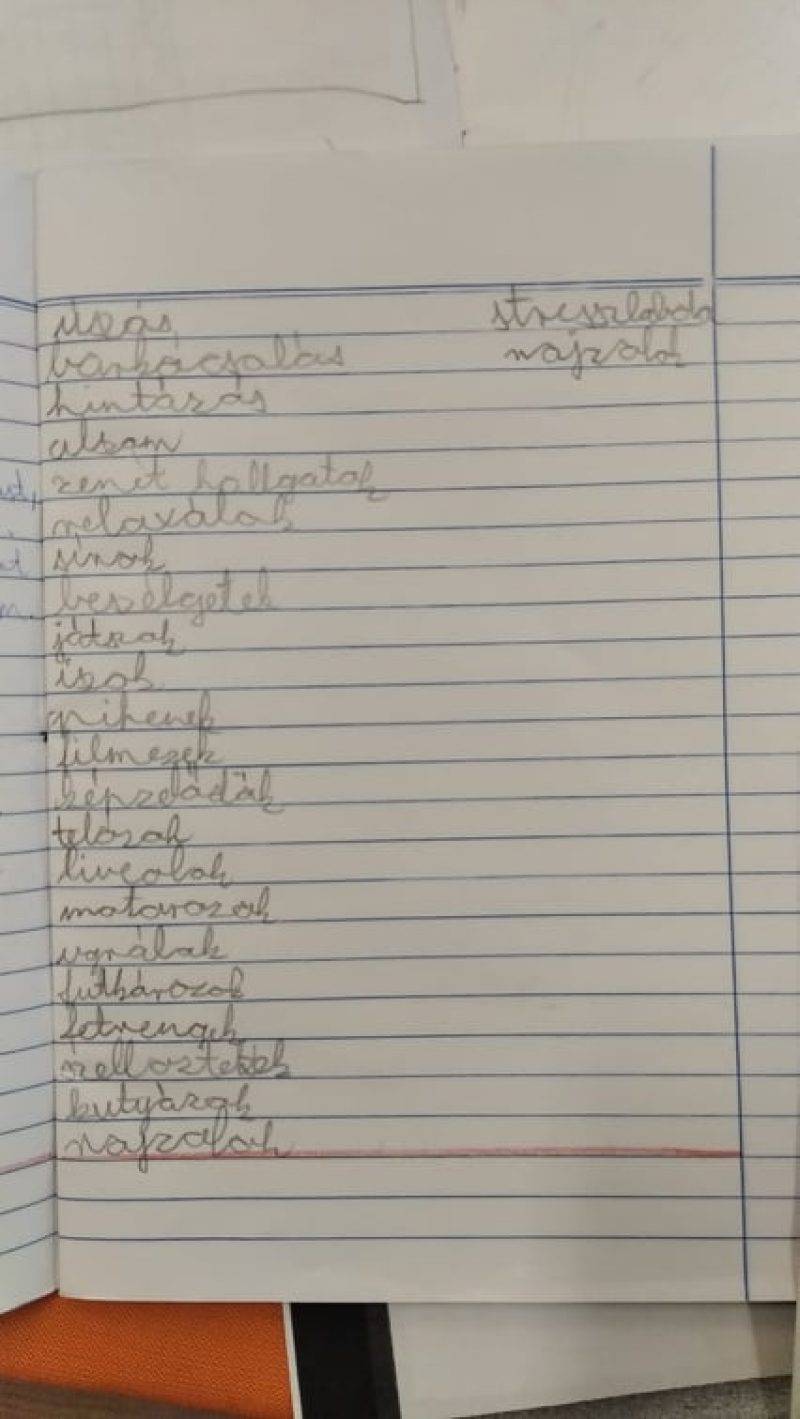 úszás
barkácsolás
hintázás
alszom
zenét hallgatok
relaxálok
sírok
beszélgetek
játszok
iszok
pihenek
filmezek
képzelődök
telózok
liveolok
motorozok
ugrálok
futkározok
fetrengek
kutyázok
rajzolok
stresszlabda
rajzolok